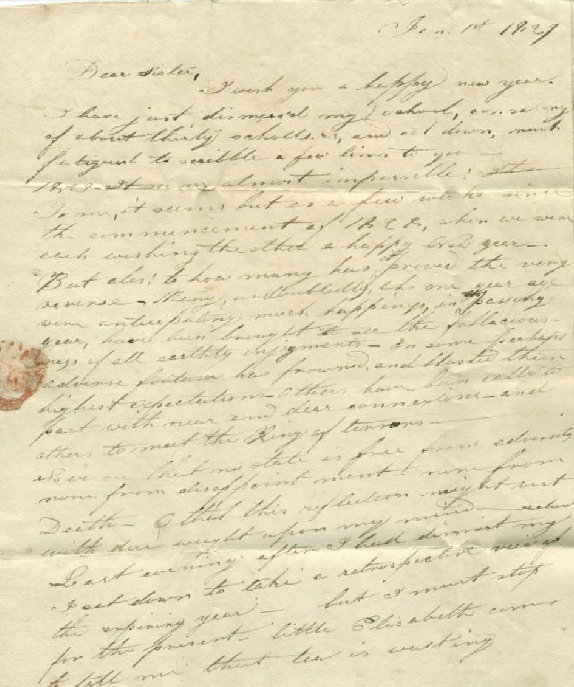 Jan. 1st 1829
Dear Sister,
I wish you a happy new year.
I have just dismissed my school, consisting
of about thirty scholars, and set down, much
fatigued to scribble a few lines to you
1829 - It seems almost impossible;
To me, it seems but as a few weeks since
the commencement of 1828, when we were
each wishing the other a happy new year -
But alas! to how many has it proved the very
reverse - Many, undoubtedly, who one year ago
were anticipating much happiness, in passing
year, have been brought to see the fallacious-
ness of all earthly enjoyments - on some perhaps
adverse fortune has frowned, and blasted their
highest expectations - Others have been called to
part with near and dear connexions - and
others to meet the King of terrors -
So we see that no state is free from adversity
none from disappointment & none from
Death - O that this reflection might rest
with due weight upon my mind -
Last evening after I had dismist my
I set down to take a retrospective view of
the expiring year - but I must stop
for the present - little Elisabeth comes
to tell me that tea is waiting